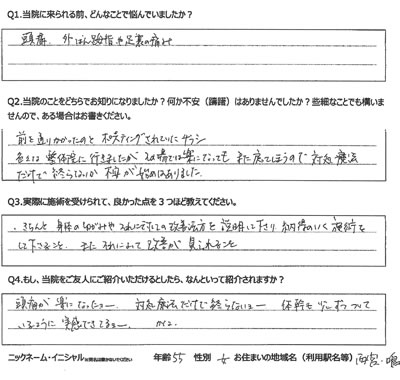 Q1.当院に来られる前、どんなことで悩んでいましたか？
頭痛、外はん拇指や足裏の痛み
Q2.当院のことをどちらでお知りになりましたか？何か不安（躊躇）はありませんでしたか？些細なことでも構いま
せんので、ある場合はお書きください。
前を通りかかったのと ポスティングされていたチラシ
整体院に行きましたが その場では楽になっても また戻ってしまうので 対処療法
だけで終らないか 不安が始めはありました
Q3.実際に施術を受けられて、良かった点を3つほど教えてください。
・きちんと 身体のゆがみや それに対しての改善方法を 説明して下さり 納得のいく施術を
して下さること。また それによって 改善が 見られること
Q4.もし、当院をご友人にご紹介いただけるとしたら、なんといって紹介されますか？
頭痛が 楽になったョー 対処療法だけで終らないョー 体幹も 少しずつついて
いるように 実感できてるョー
ニックネーム・イニシャル
年齢 55 性別 女 お住まいの地域名（利用駅名等） 西宮・鳴